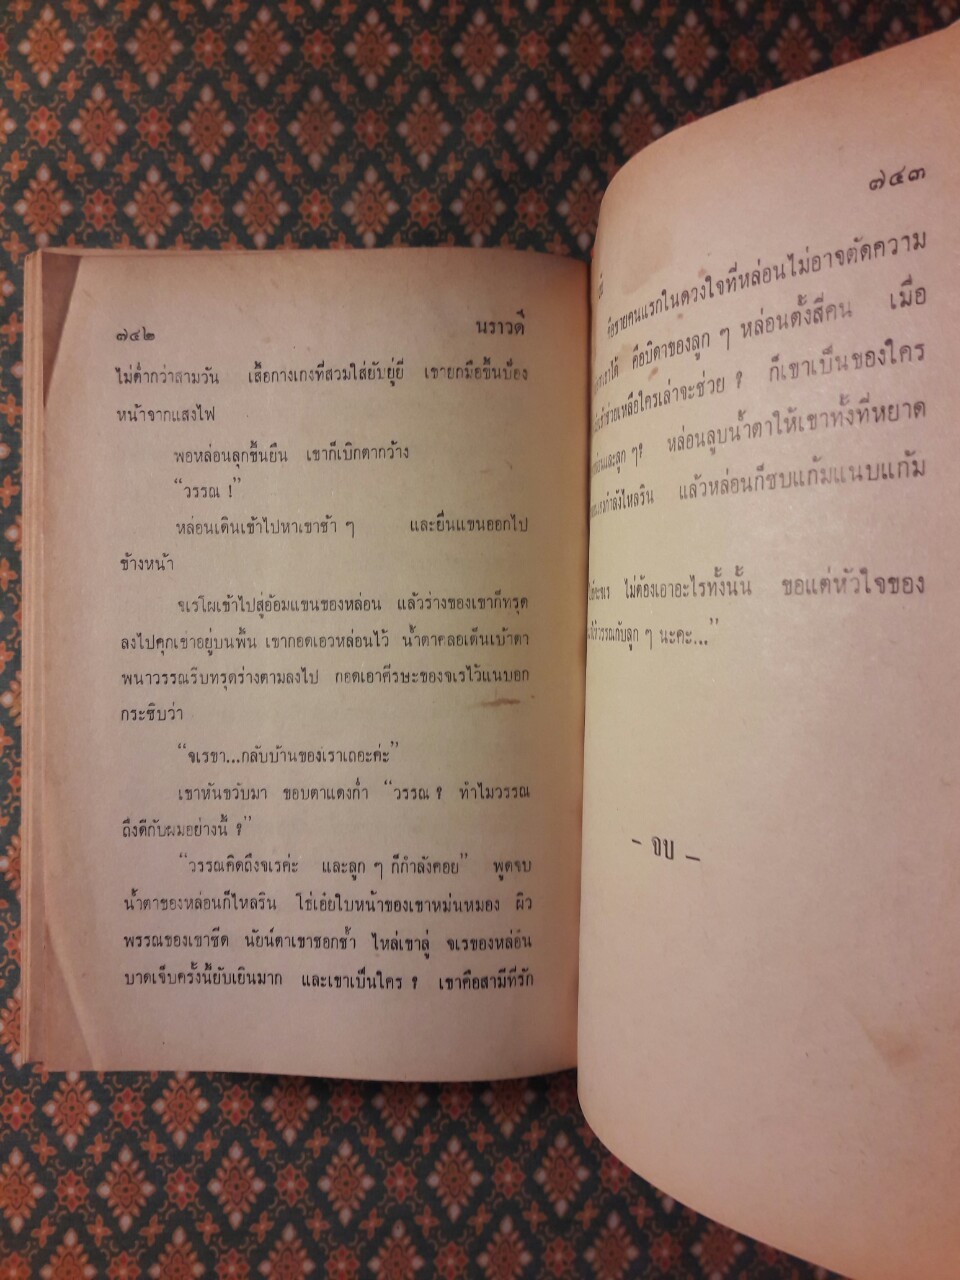 ๗๔๒ นราวดี
ไม่ต่ำกว่าสามวัน เสื้อกางเกงที่สวมใส่ยับยู่ยี่ เขายกมือขึ้นป้อง
หน้าจากแสงไฟ
พอหล่อนลุกขึ้นยืน เขาก็เบิกตากว้าง
“วรรณ !”
หล่อนเดินเข้าไปหาเขาช้า ๆ และยื่นแขนออกไป
ข้างหน้า
จเรโผเข้าไปสู่อ้อมแขนของหล่อน แล้วร่างของเขาก็ทรุด
ลงไปคุกเข่าอยู่บนพื้น เขากอดเอวหล่อนไว้ น้ำตาคลอเต็มเบ้าตา
พนาวรรณรีบทรุดร่างตามลงไป กอดเอาศีรษะของจเรไว้แนบอก
กระซิบว่า
“จเรขา...กลับบ้านของเราเถอะค่ะ”
เขาหันขวับมา ขอบตาแดงก่ำ “วรรณ ? ทำไมวรรณ
ถึงดีกับผมอย่างนี้ ?”
“วรรณคิดถึงจเรค่ะ และลูก ๆ ก็กำลังคอย” พูดจบ
น้ำตาของหล่อนก็ไหลริน โธ่เอ๋ยใบหน้าของเขาหม่นหมอง ผิว
พรรณของเขาซีด นัยน์ตาเขาชอกช้ำ ไหล่เขาลู่ จเรของหล่อน
บาดเจ็บครั้งนี้ยับเยินมาก และเขาเป็นใคร ? เขาคือสามีที่รัก
๗๔๓
คือชายคนแรกในดวงใจที่หล่อนไม่อาจตัดความ
ได้ คือบิดาของลูก ๆ หล่อนตั้งสี่คน เมื่อ
ช่วยเหลือใครเล่าจะช่วย ? ก็เขาเป็นของใคร
และลูก ๆ? หล่อนลูบน้ำตาให้เขาทั้งที่หยาด
กำลังไหลริน แล้วหล่อนก็ซบแก้มแนบแก้ม
ไม่ต้องเอาอะไรทั้งนั้น ขอแต่หัวใจของ
วรรณกับลูก ๆ นะคะ...”
– จบ –